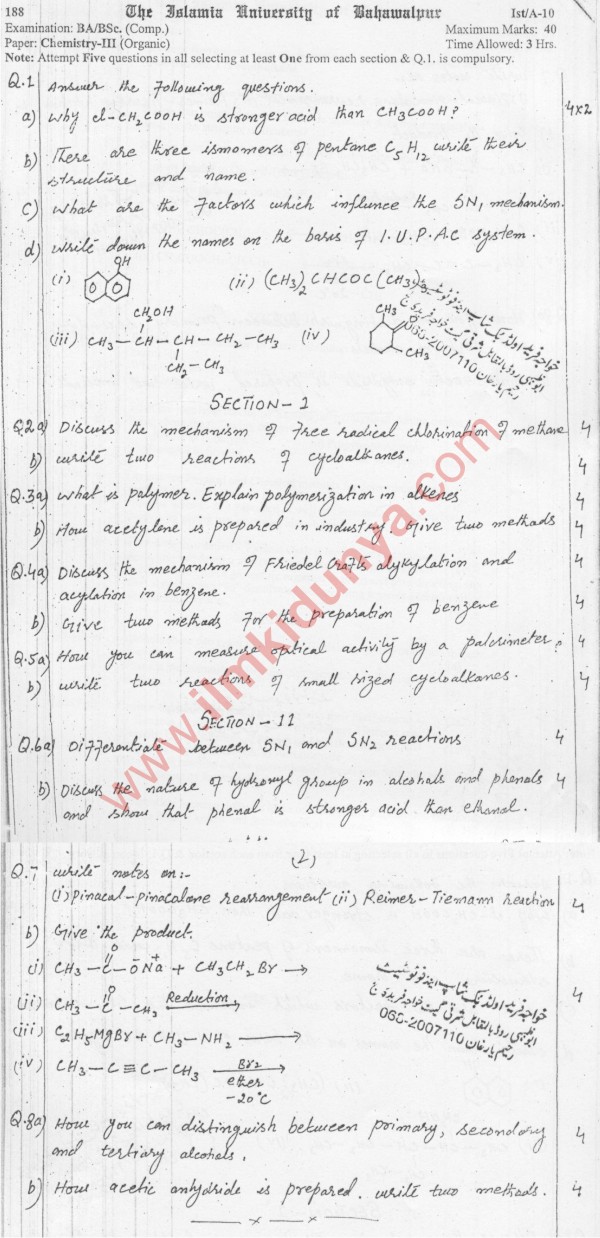 188 The Islamia University of Bahawalpur Ist/A-10
Examination: BA/BSc. (Comp.) Maximum Marks: 40
Paper: Chemistry-III (Organic) Time Allowed: 3 Hrs.
Note: Attempt Five questions in all selecting at least One from each section & Q.1. is compulsory.
Q.1 Answer the following questions.
a) Why cl-CH₂COOH is stronger acid than CH₃COOH? 4x2
b) There are three ismomers of pentane C₅H₁₂ write their
structure and name.
c) What are the factors which influnce the SN₁ mechanism.
d) Write down the names on the basis of I.U.P.A.C system.
OH
(i) (ii) (CH₃)₂CHCOC(CH₃)₃
CH₂OH CH₃
(iii) CH₃-CH-CH-CH₂-CH₃ (iv)
CH₃
CH₂-CH₃
خواجہ فرید اولڈ بک شاپ اینڈ فوٹوسٹیٹ
066-2007110
SECTION-1
Q.2a) Discuss the mechanism of free radical chlorination of methane 4
b) write two reactions of cycloalkanes. 4
Q.3a) What is polymer. Explain polymerization in alkenes 4
b) How acetylene is prepared in industry. Give two methods 4
Q.4a) Discuss the mechanism of Friedel Crafts alykylation and 4
acylation in benzene.
b) Give two methods for the preparation of benzene 4
Q.5a) How you can measure optical activity by a palorimeter? 4
b) write two reactions of small sized cycloalkanes. 4
SECTION-11
Q.6a) Differentiate between SN₁ and SN₂ reactions 4
b) Discuss the nature of hydroxyl group in alcohals and phenols 4
and show that phenal is stronger acid than ethanol.
www.ilmkidunya.com
(2)
Q.7 write notes on:-
(i) Pinacal-pinacalone rearrangement (ii) Reimer-Tiemann reaction 4
b) Give the product.
O
(i) CH₃-C-ŌNa⁺ + CH₃CH₂Br →
O
(ii) CH₃-C-CH₃ Reduction → 4
(iii) C₂H₅MgBr + CH₃-NH₂ →
(iv) CH₃-C≡C-CH₃ Br₂ →
ether
-20°C
خواجہ فرید اولڈ بک شاپ اینڈ فوٹوسٹیٹ
066-2007110
Q.8a) How you can distinguish between primary, secondary 4
and tertiary alcohels.
b) How acetic anhydride is prepared. write two methods. 4